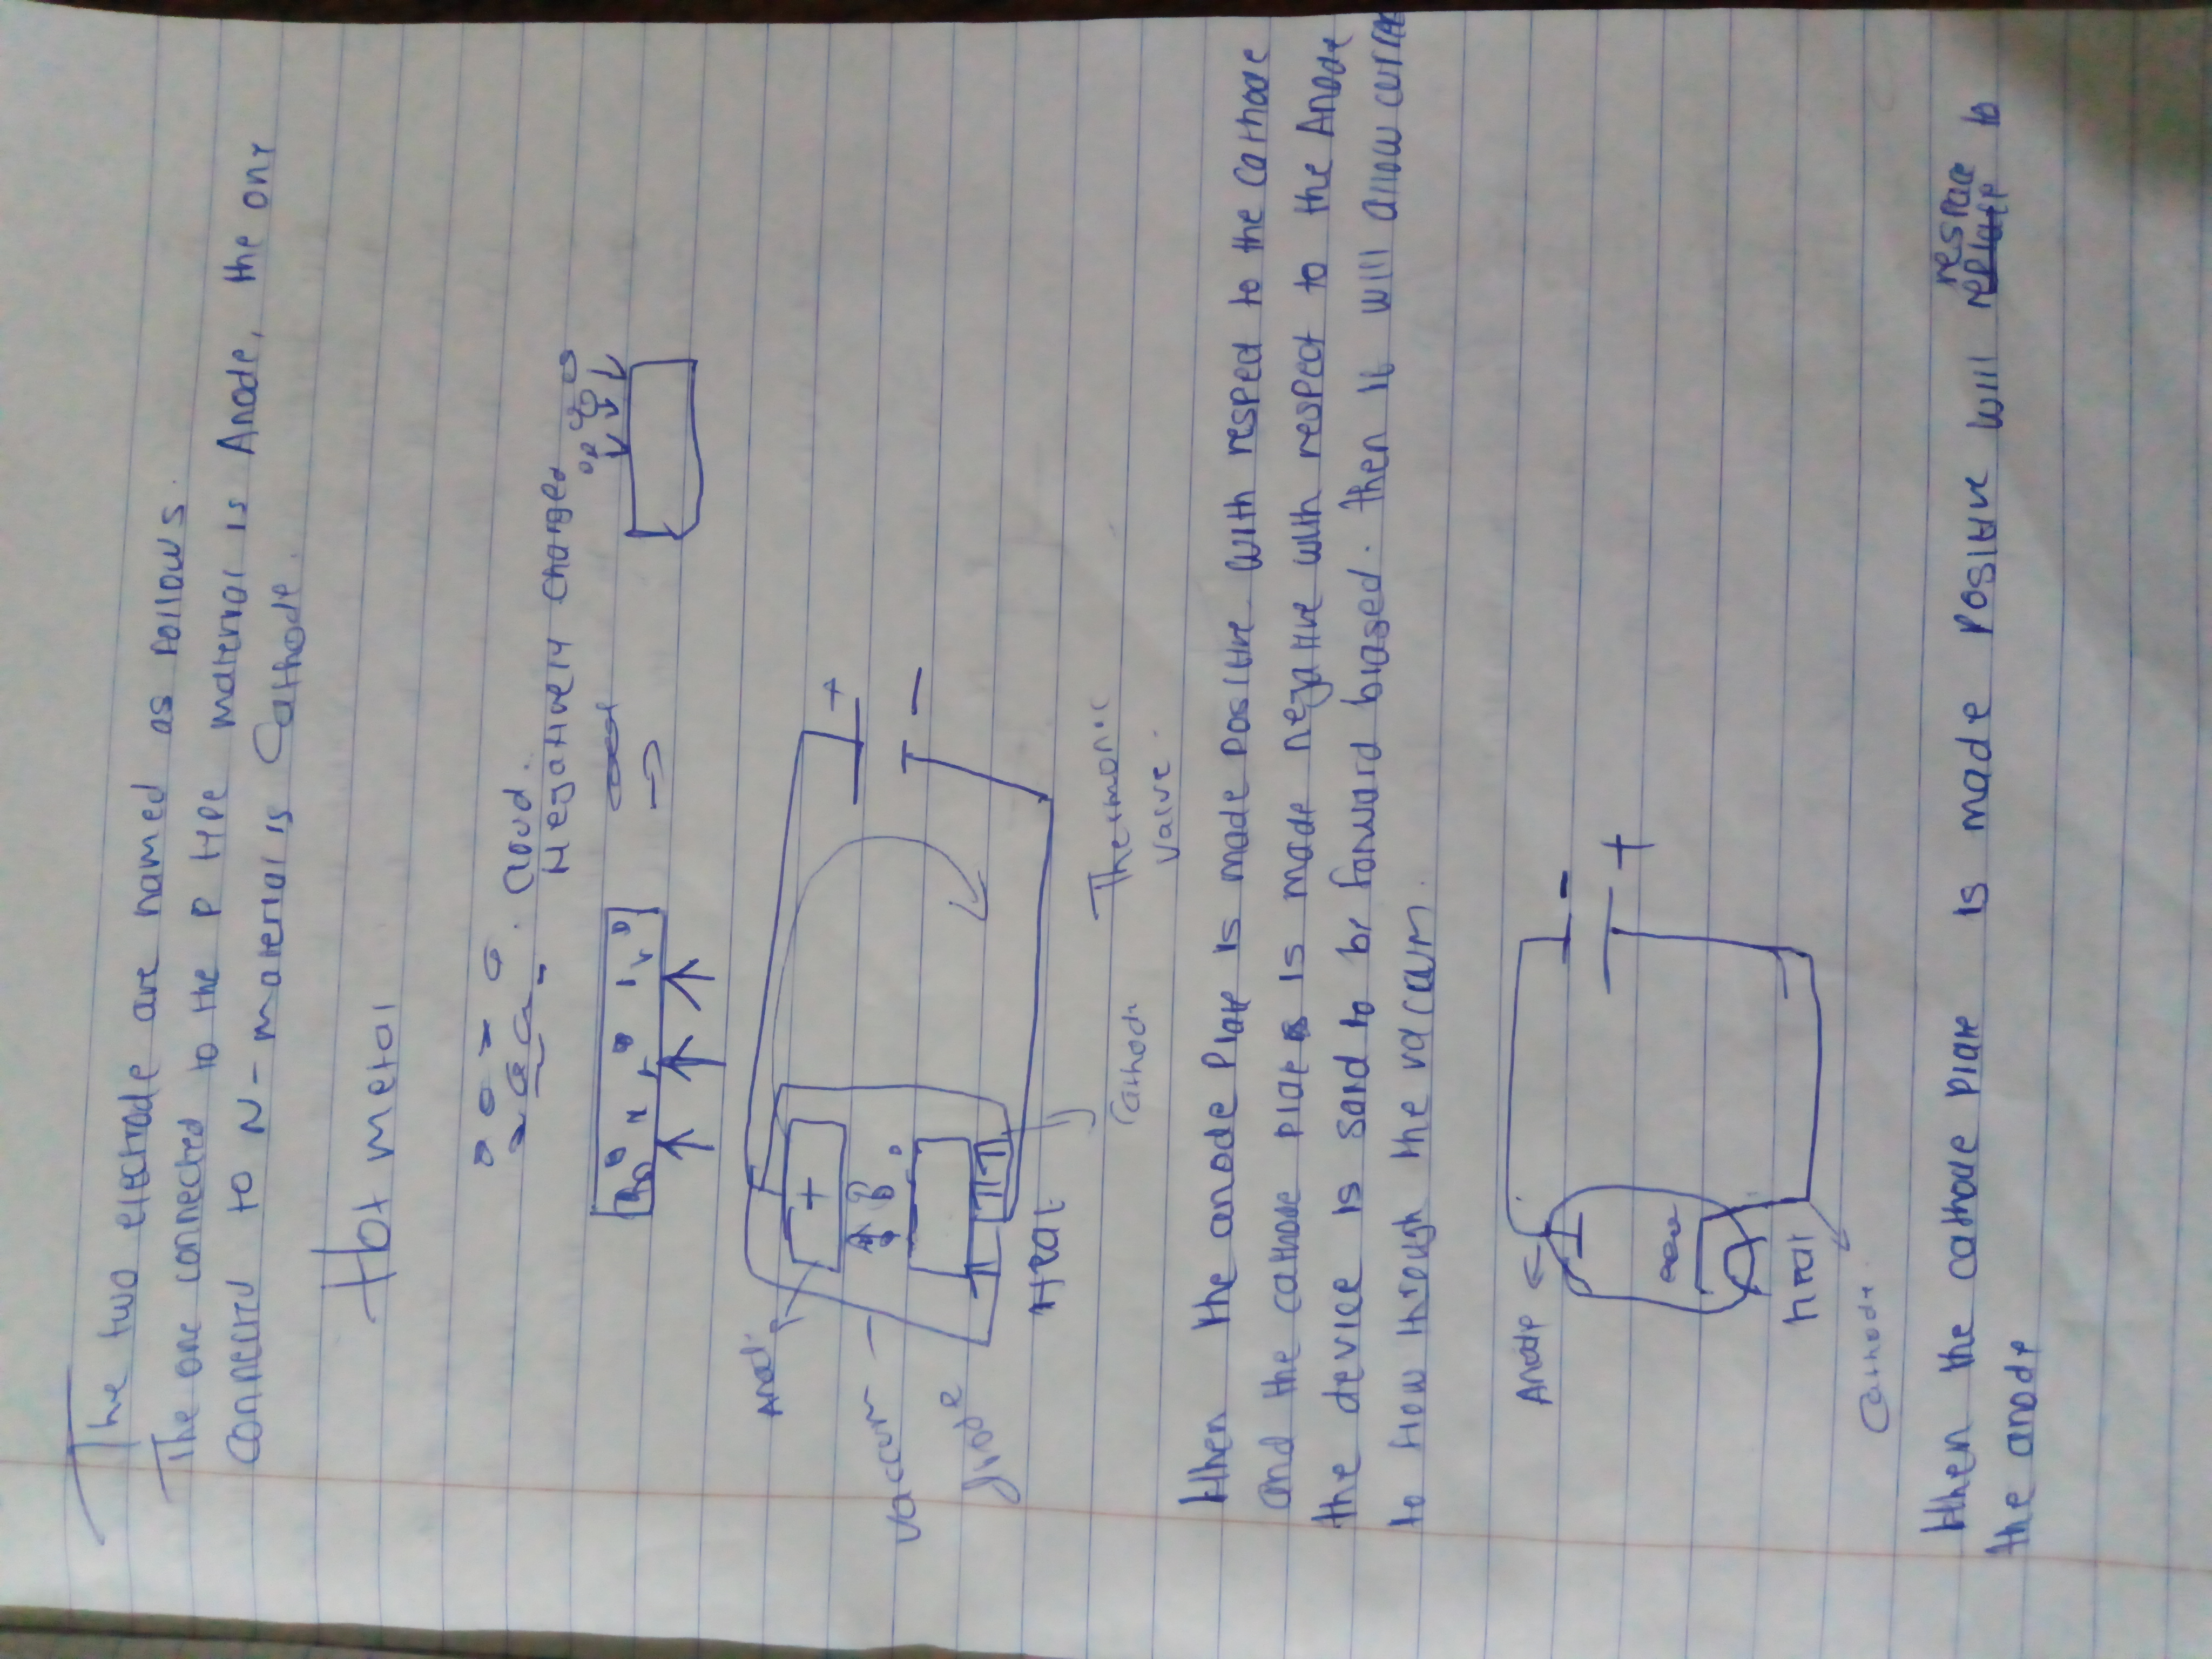 The two electrode are named as follows.
The one connected to the P type material is Anode, the one
connected to N - material is Cathode.
Hot metal
Cloud.
Negatively charged
Anod
+
+
vaccum
-
diode
Heat
Cathod
Thermonic
Valve
When the anode Plate is made positive with respect to the Cathode
and the cathode plate is made negative with respect to the Anode
the device is said to be forward biased. then it will allow curren
to flow through the vacuum.
Anode
-
+
heat
Cathode
When the cathode plate is made positive will respace to
the anode